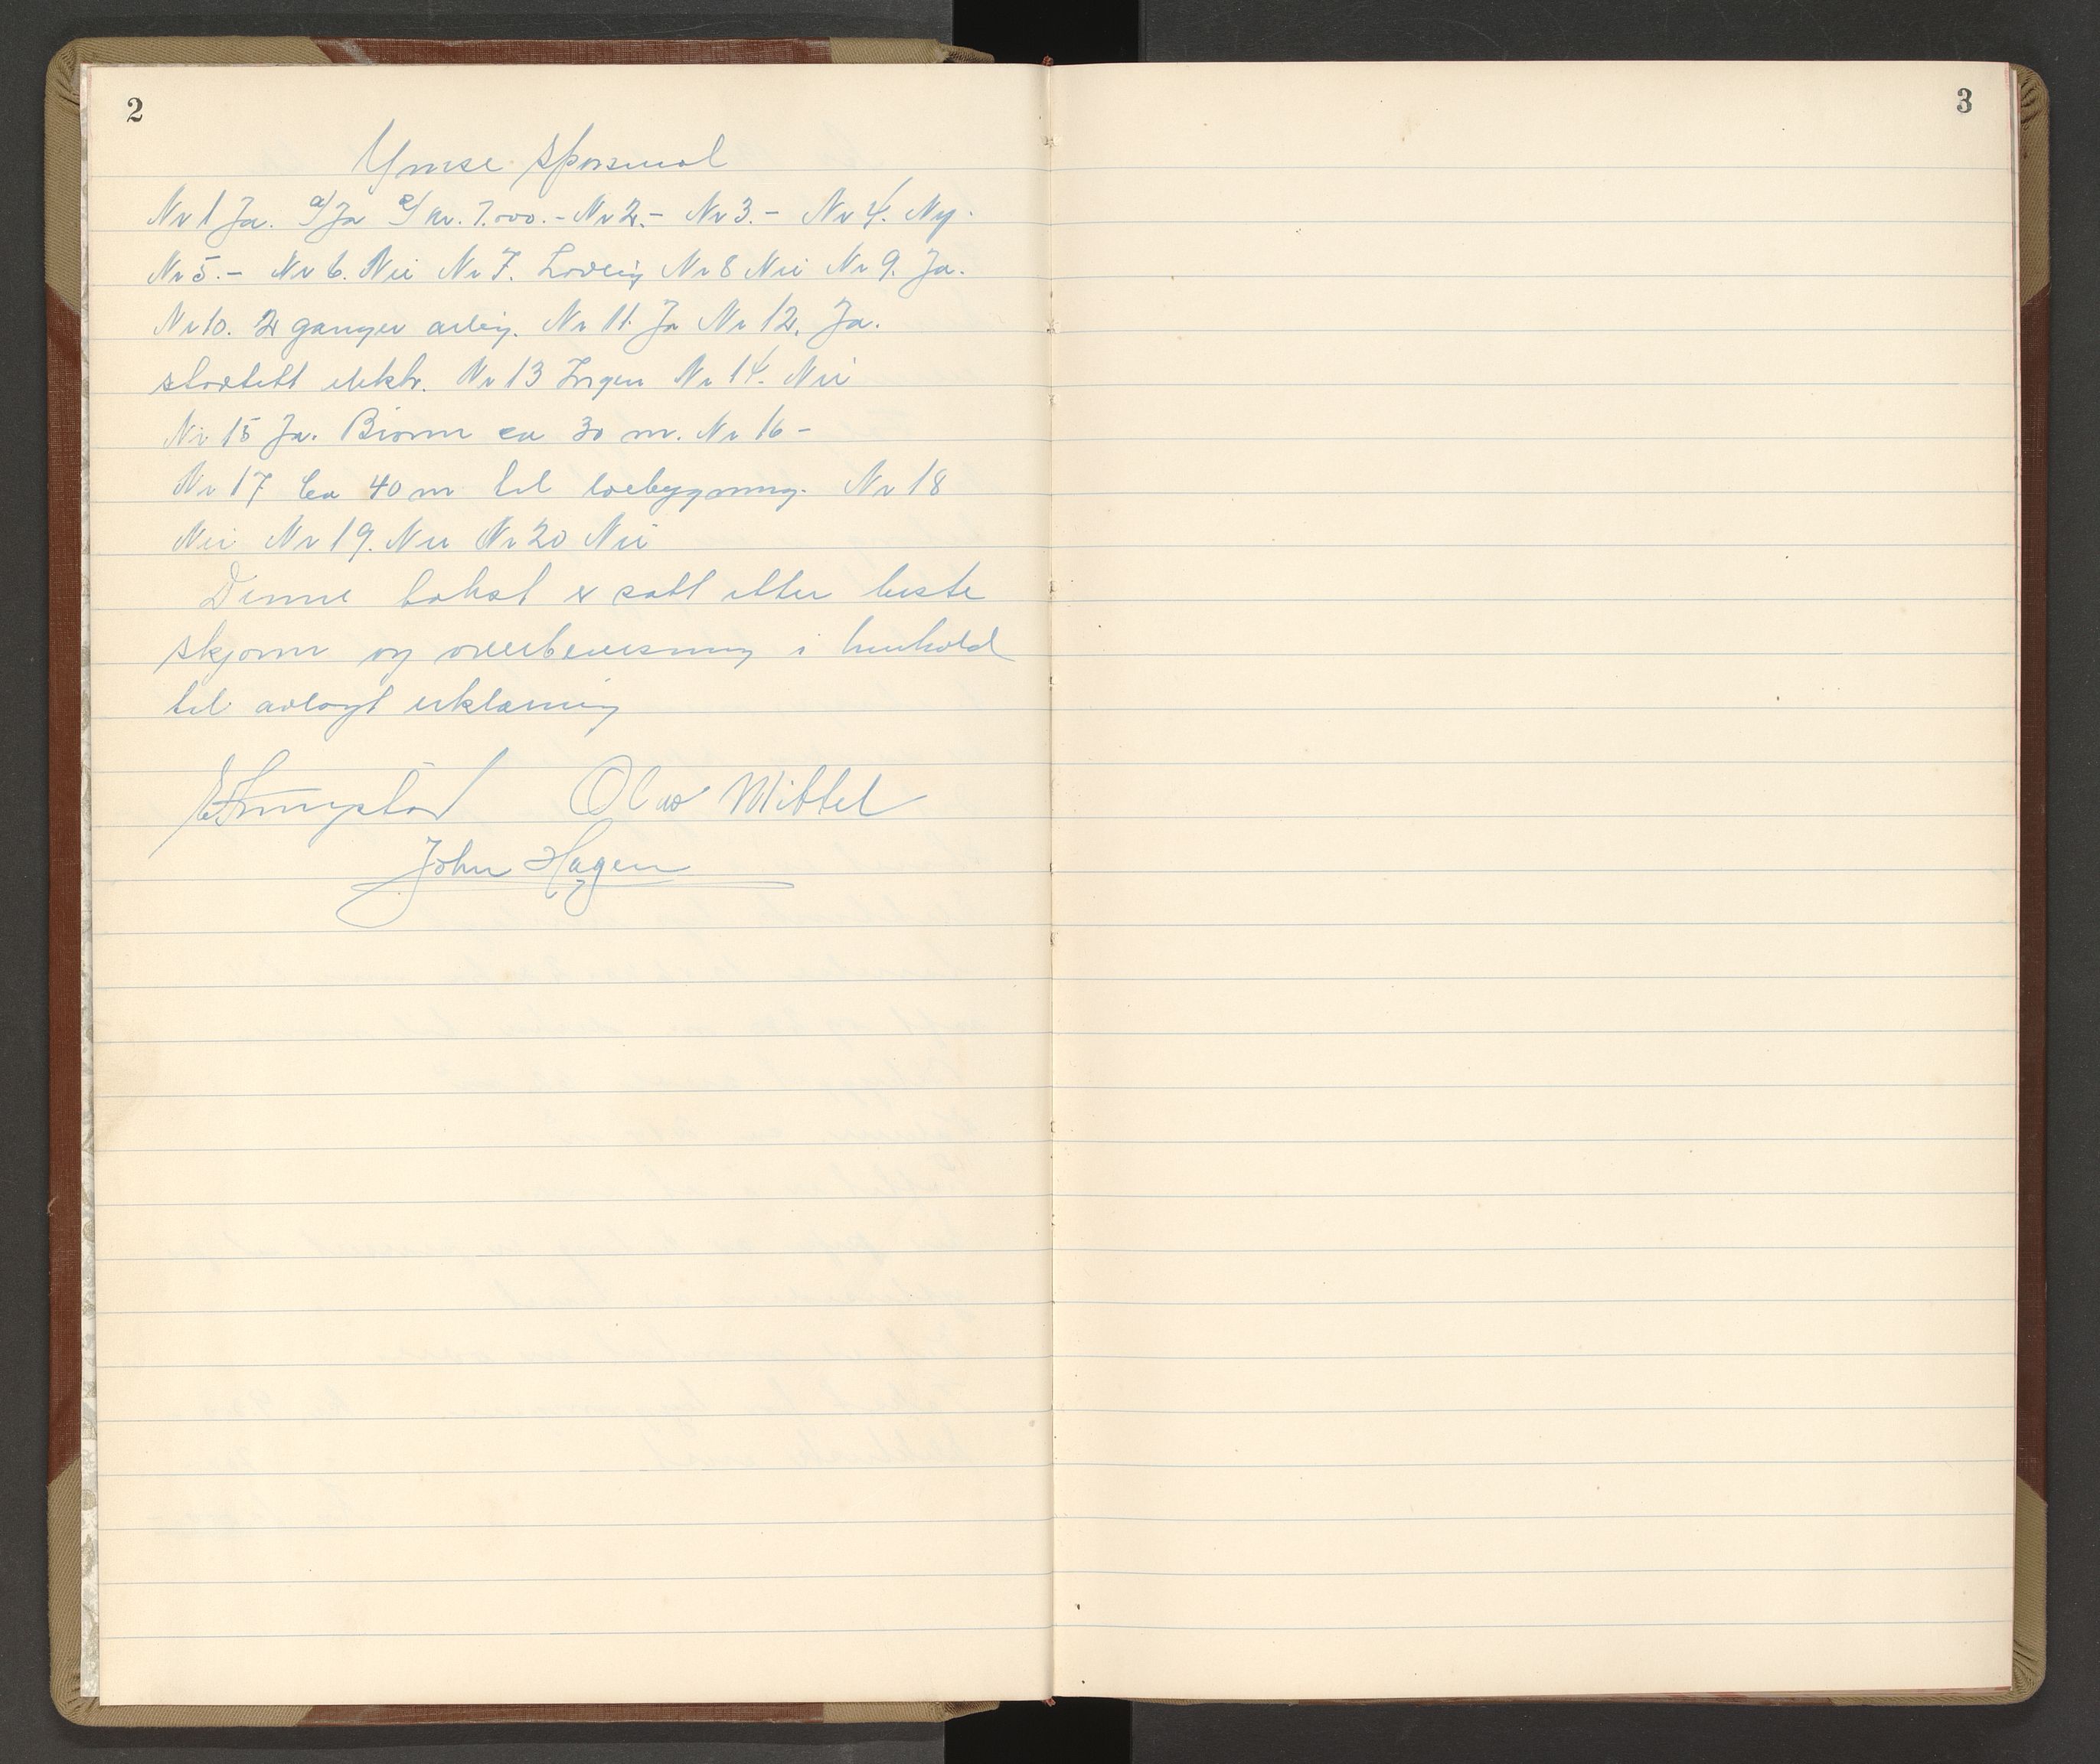 2
Ymse spørsmål
Nr 1 Ja. a/ Ja e/ kr. 7.000.- Nr 2.- Nr 3.- Nr 4. Ny.
Nr 5.- Nr 6. Nei Nr 7. Lovlig Nr 8 Nei Nr 9. Ja.
Nr 10. 2 ganger årlig. Nr 11. Ja Nr 12. Ja.
slortett elektr. Nr 13 Ingen Nr 14. Nei
Nr 15 Ja. Brønn ca 30 m. Nr 16 -
Nr 17 Ca 40 m til løebygning. Nr 18
Nei Nr 19. Nei Nr 20 Nei
Denne takst er satt etter beste
skjønn og overbevisning i henhold
til avlagt erklæring
Olav Mittel
John Hagen
3